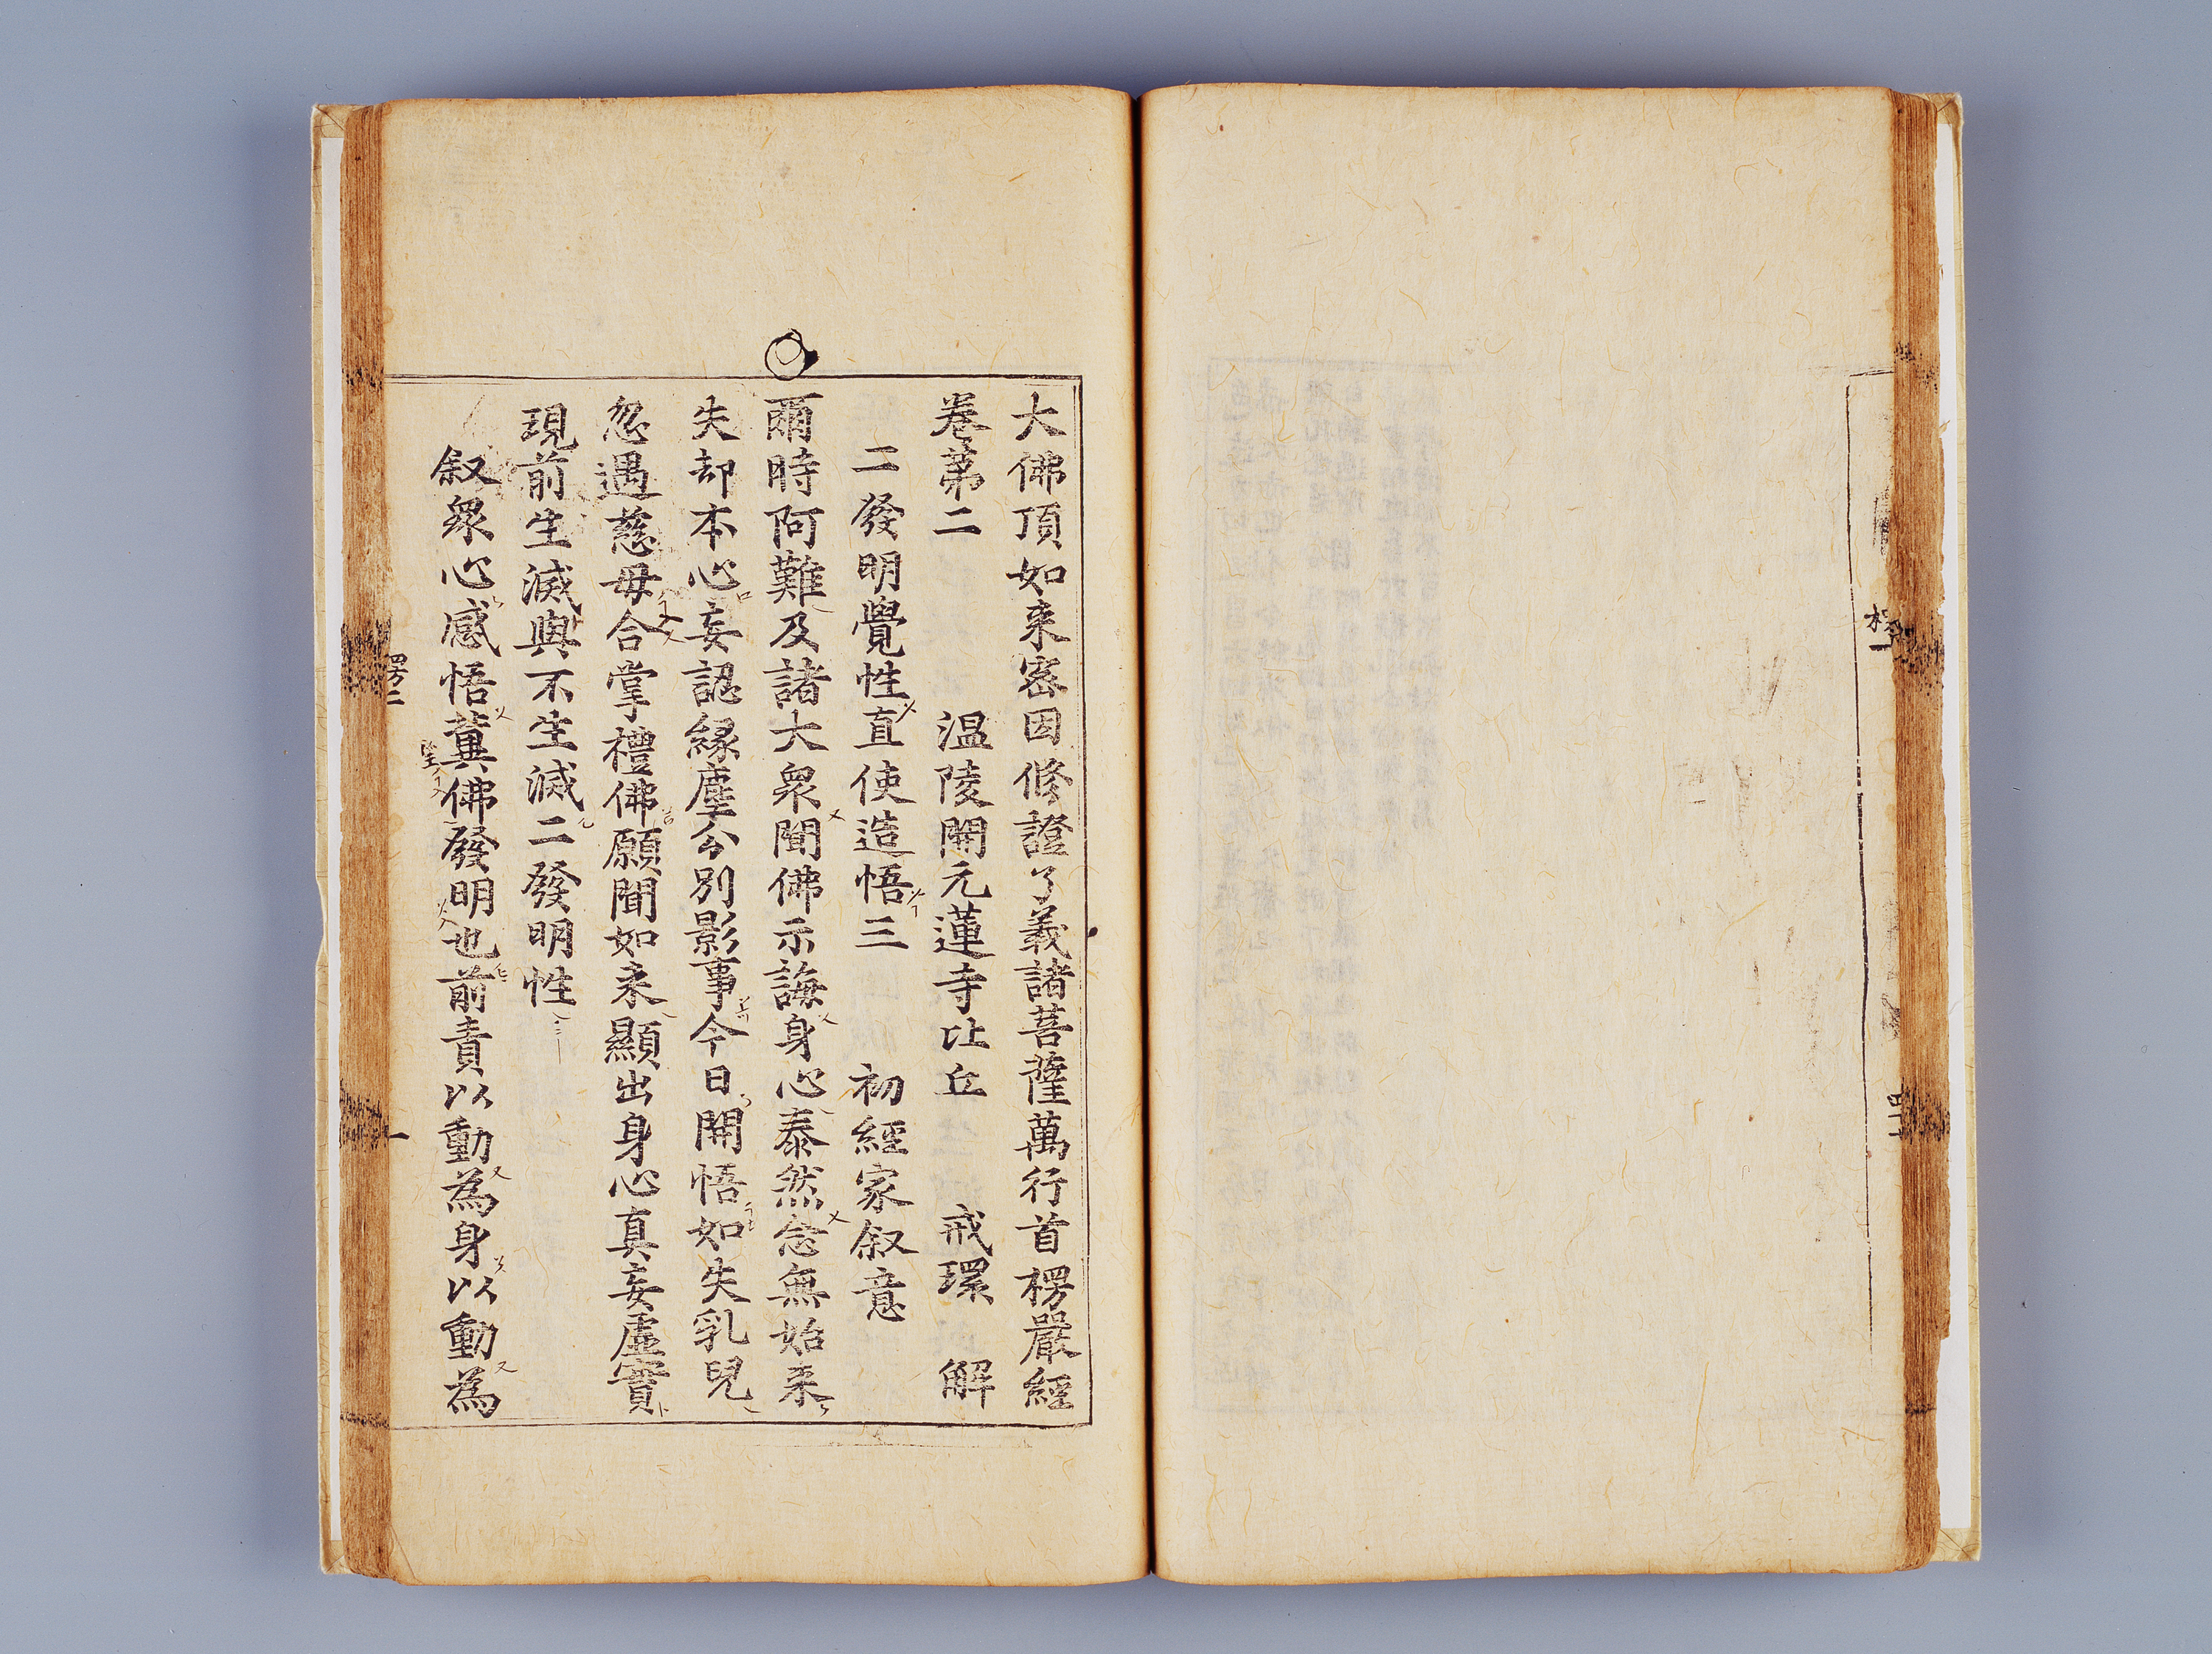 大佛頂如来密因修證了義諸菩薩萬行首楞嚴經
卷第二 温陵開元蓮寺比丘 戒環 解
二發明覺性直使造悟三 初經家叙意
爾時阿難及諸大衆聞佛示誨身心泰然念無始来
失却本心妄認緣塵分別影事今日開悟如失乳兒
忽遇慈母合掌禮佛願聞如来顯出身心真妄虛實
現前生滅與不生滅二發明性
叙衆心感悟冀佛發明也前責以動為身以動為
楞二
一